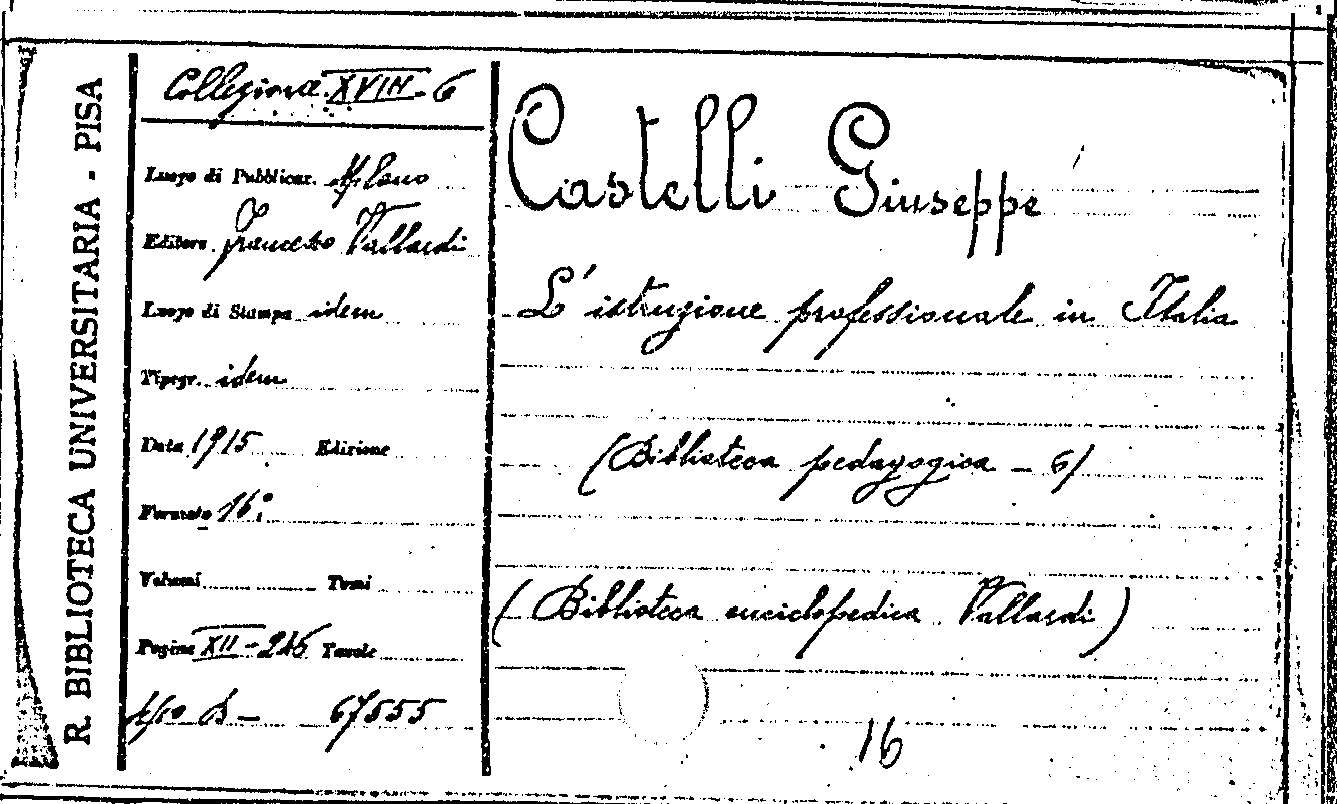 R. BIBLIOTECA UNIVERSITARIA - PISA
Collezione XVIII-6
Luogo di Pubblicaz. Milano
Editore Francesco Vallardi
Luogo di Stampa idem
Tipogr. idem
Data 1915 Edizione
Formato 16º
Volumi Tomi
Pagine XII-245 Tavole
67555
Castelli Giuseppe
L'istruzione professionale in Italia
(Biblioteca pedagogica - 6)
(Biblioteca enciclopedica Vallardi)
16